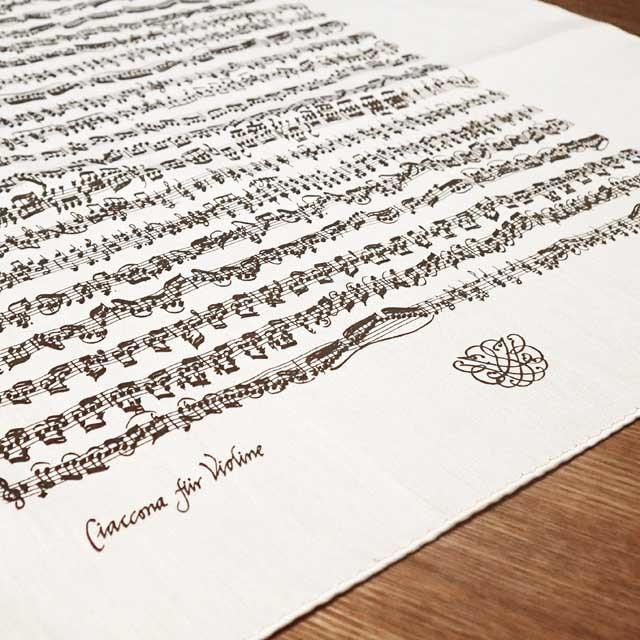 Ciaccona für Violine